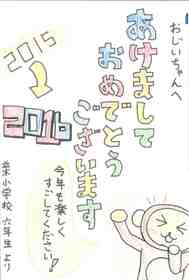 おじいちゃんへ
あけまして
おめでとう
ございます
2015
2016
今年も楽しく
すごしてください!
小学校 六年生より